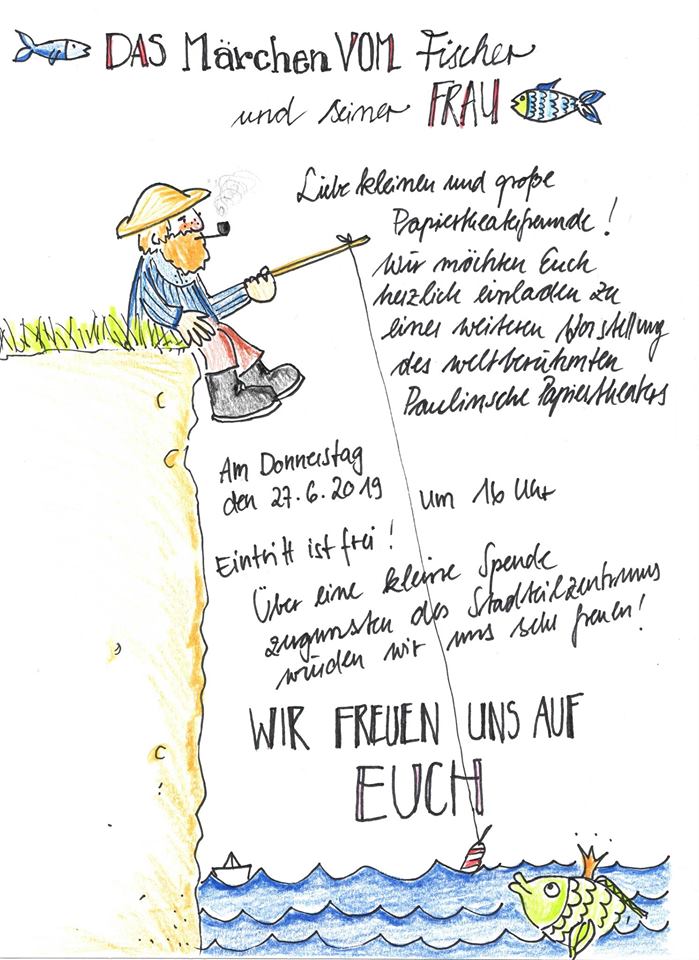 DAS Märchen VOM Fischer
und seiner FRAU
Liebe kleinen und große
Papiertheaterfreunde!
Wir möchten Euch
herzlich einladen zu
einer weiteren Vorstellung
des weltberühmten
Paulinsche Papiertheaters
Am Donnerstag
den 27.6.2019 um 16 Uhr
Eintritt ist frei!
Über eine kleine Spende
zugunsten des Stadtteilzentrums
würden wir uns sehr freuen!
WIR FREUEN UNS AUF
EUCH